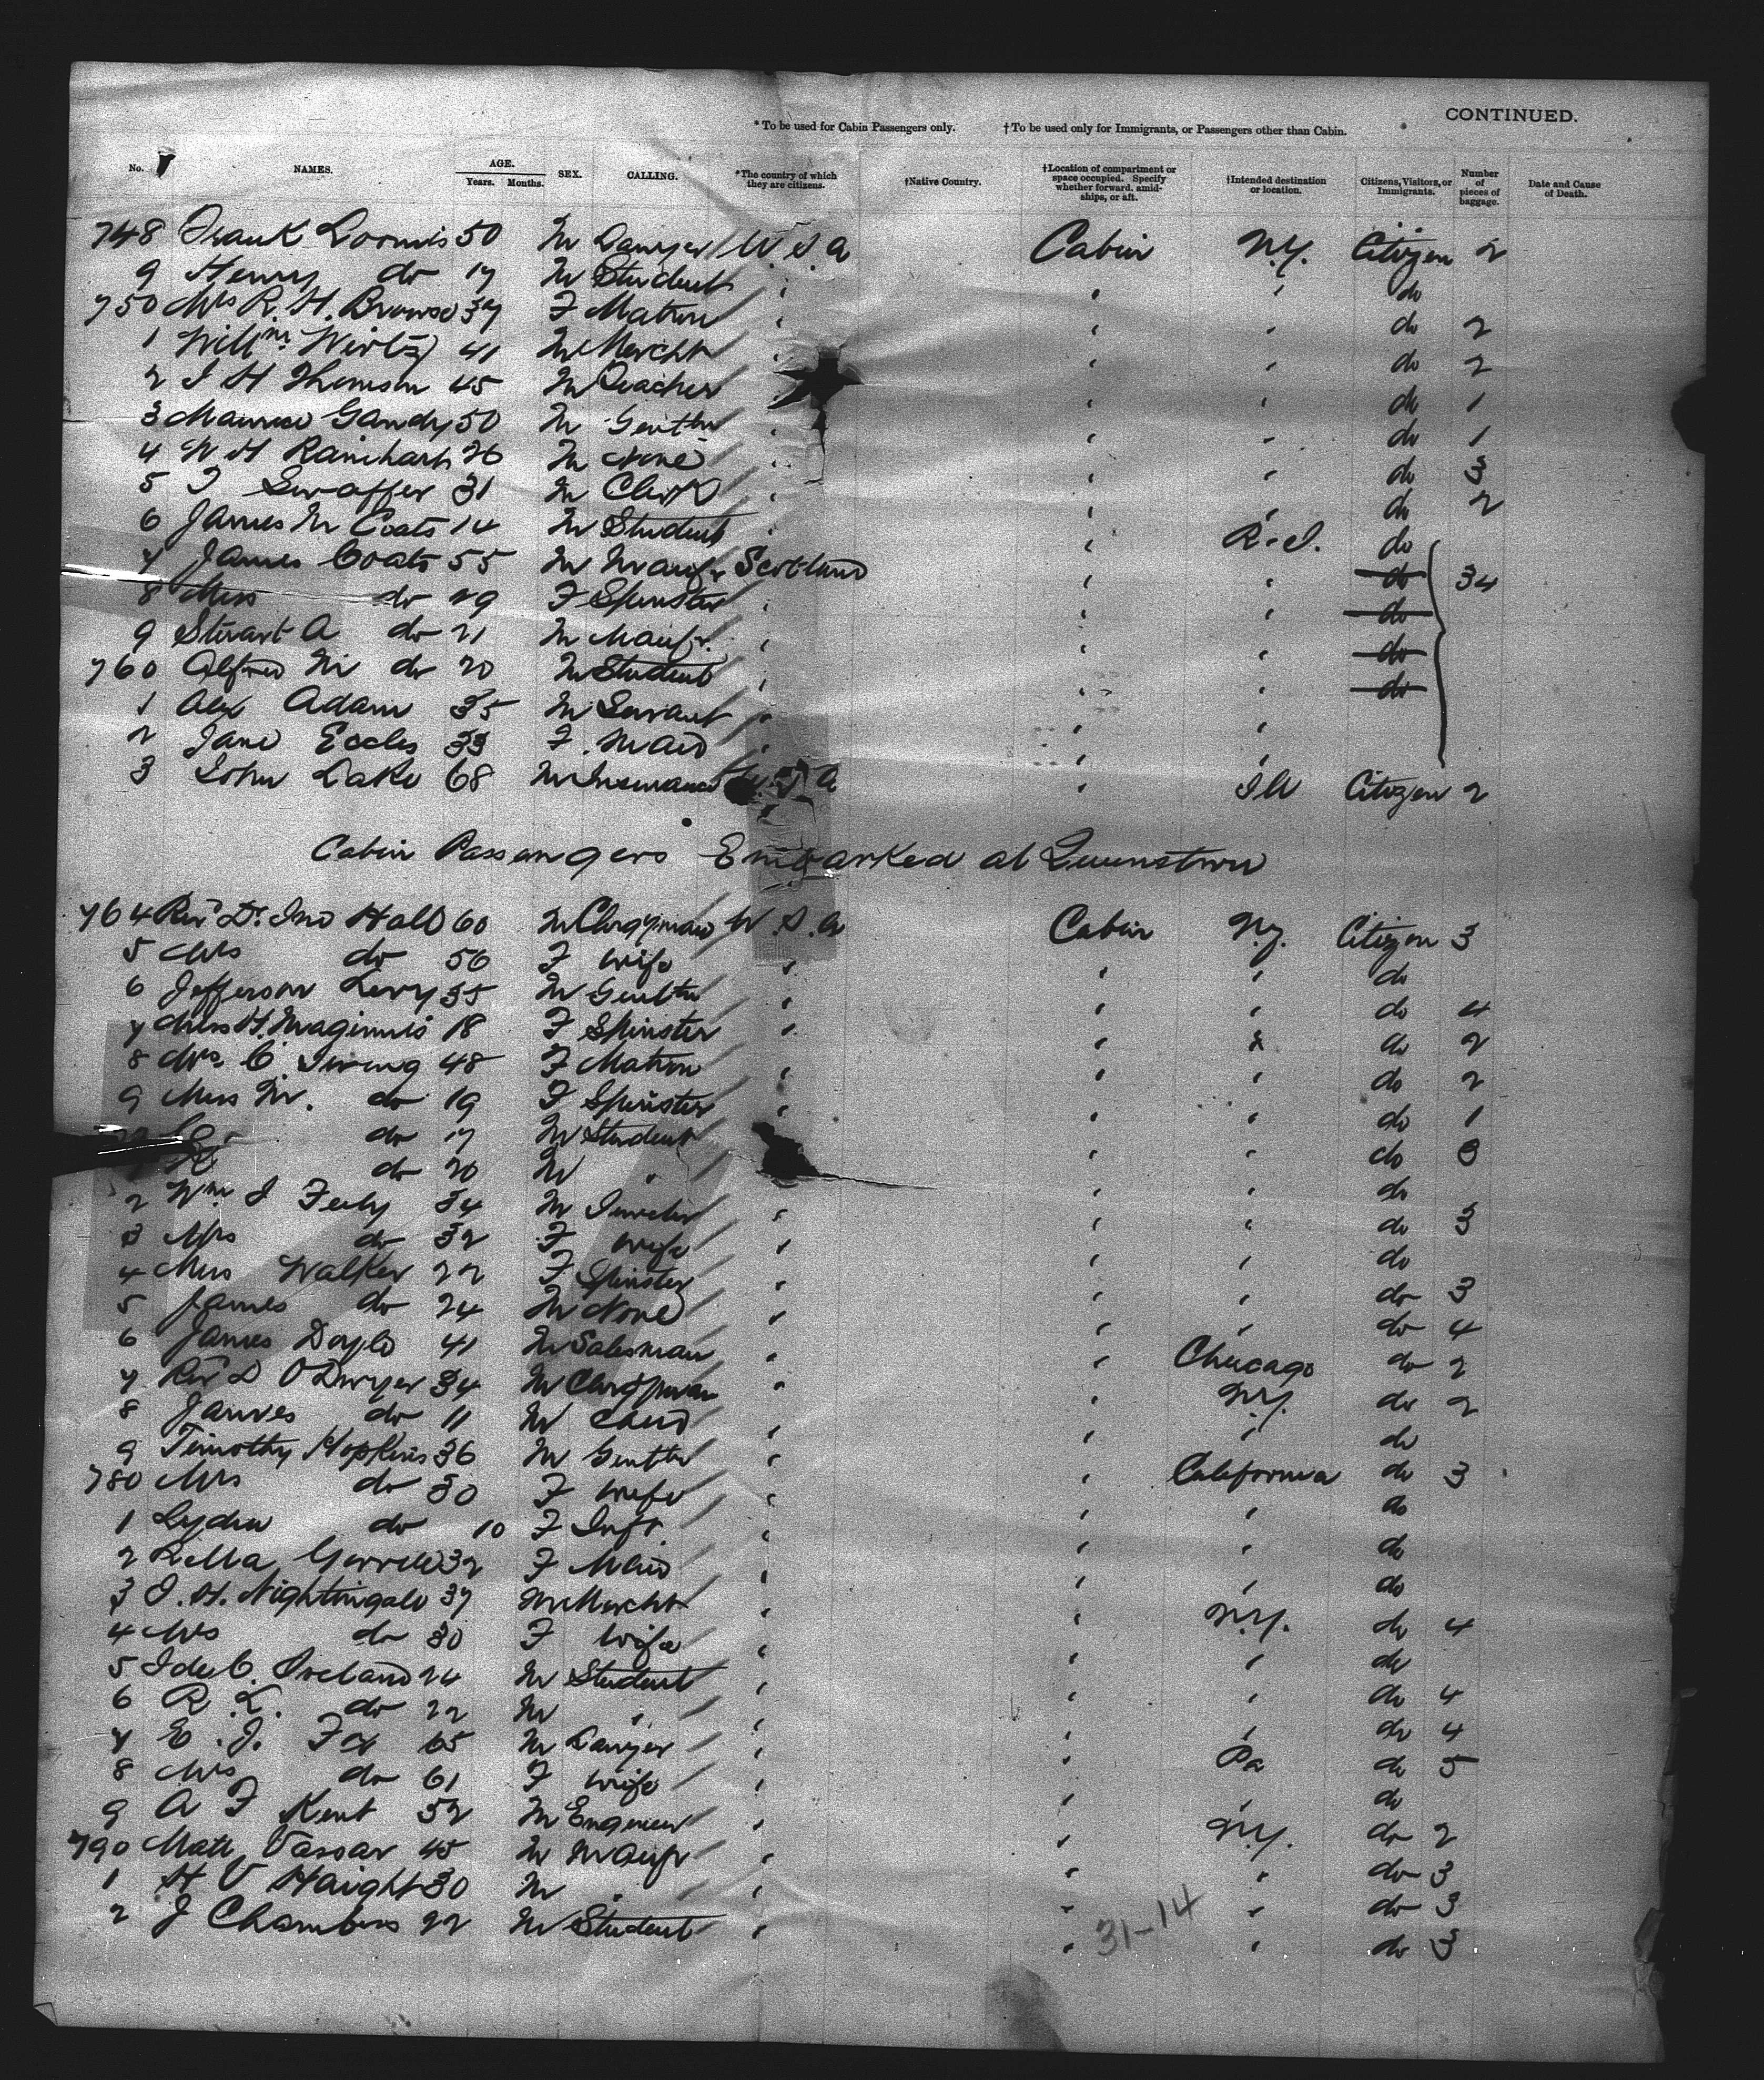 CONTINUED.
* To be used for Cabin Passengers only. † To be used only for Immigrants, or Passengers other than Cabin.
No. NAMES. AGE. Years. Months. SEX. CALLING. *The country of which they are citizens. †Native Country. †Location of compartment or space occupied. Specify whether forward, amidships, or aft. †Intended destination or location. Citizens, Visitors, or Immigrants. Number of pieces of baggage. Date and Cause of Death.
748 Frank Loomis 50 M Lawyer U.S.A Cabin N.Y. Citizen 2
9 Henry do 17 M Student " " " do
750 Mrs R. H. Browse 37 F Matron " " " do 2
1 Willm Wirtz 41 M Mercht " " " do 2
2 J H Thomson 45 M Teacher " " " do 1
3 Maurice Gandy 50 M Gentln " " " do 1
4 W H Rainhart 26 M None " " " do 3
5 J Swaffer 31 M Clerk " " " do 2
6 James M Coats 14 M Student " " R.I. do
7 James Coats 55 M Manfr Scotland " " do 34
8 Miss do 29 F Spinster " " " do
9 Stuart A do 21 M Manfr. " " " do
760 Alfred M do 20 M Student " " " do
1 Alex Adam 35 M Servant " " "
2 Jane Eccles 33 F Maid " " "
3 John Lake 68 M Insurance U.S.A " Ill Citizen 2
Cabin Passengers Embarked at Queenstown
764 Revd Dr. Jno Hall 60 M Clergyman U.S.A Cabin N.Y. Citizen 3
5 Mrs do 56 F Wife " " " do
6 Jefferson Levy 35 M Gentln " " " do 4
7 Miss H. Maginnis 18 F Spinster " " " do 2
8 Mrs. C. Irving 48 F Matron " " " do 2
9 Miss M. do 19 F Spinster " " " do 1
do 17 M Student " " do 3
do 20 M " " " do
2 Wm J Feely 34 M Jeweler " " " do 3
3 Mrs do 32 F Wife " " " do
4 Miss Walker 22 F Spinster " " " do 3
5 James do 24 M None " " " do 4
6 James Doyle 41 M Salesman " " Chicago do 2
7 Revd D O'Dwyer 34 M Clergyman " " N.Y. do 2
8 James do 11 M Child " " " do
9 Timothy Hopkins 36 M Gentln " " California do 3
780 Mrs do 30 F Wife " " " do
1 Lydia do 10 F Inft. " " " do
2 Rella 32 F Maid " " " do
3 J. H. Nightingale 37 M Mercht " " N.Y. do 4
4 Mrs do 30 F Wife " " " do
5 J de C. Ireland 24 M Student " " " do 4
6 R. L. do 22 M " " " " do 4
7 E. J. Fox 65 M Lawyer " " Pa do 5
8 Mrs do 61 F Wife " " " do
9 A F Kent 52 M Engineer " " N.Y. do 2
790 Matt Vassar 45 M Manfr " " " do 3
1 H V Haight 30 M " " " " do 3
2 J Chambers 22 M Student " " " do 3
31-14